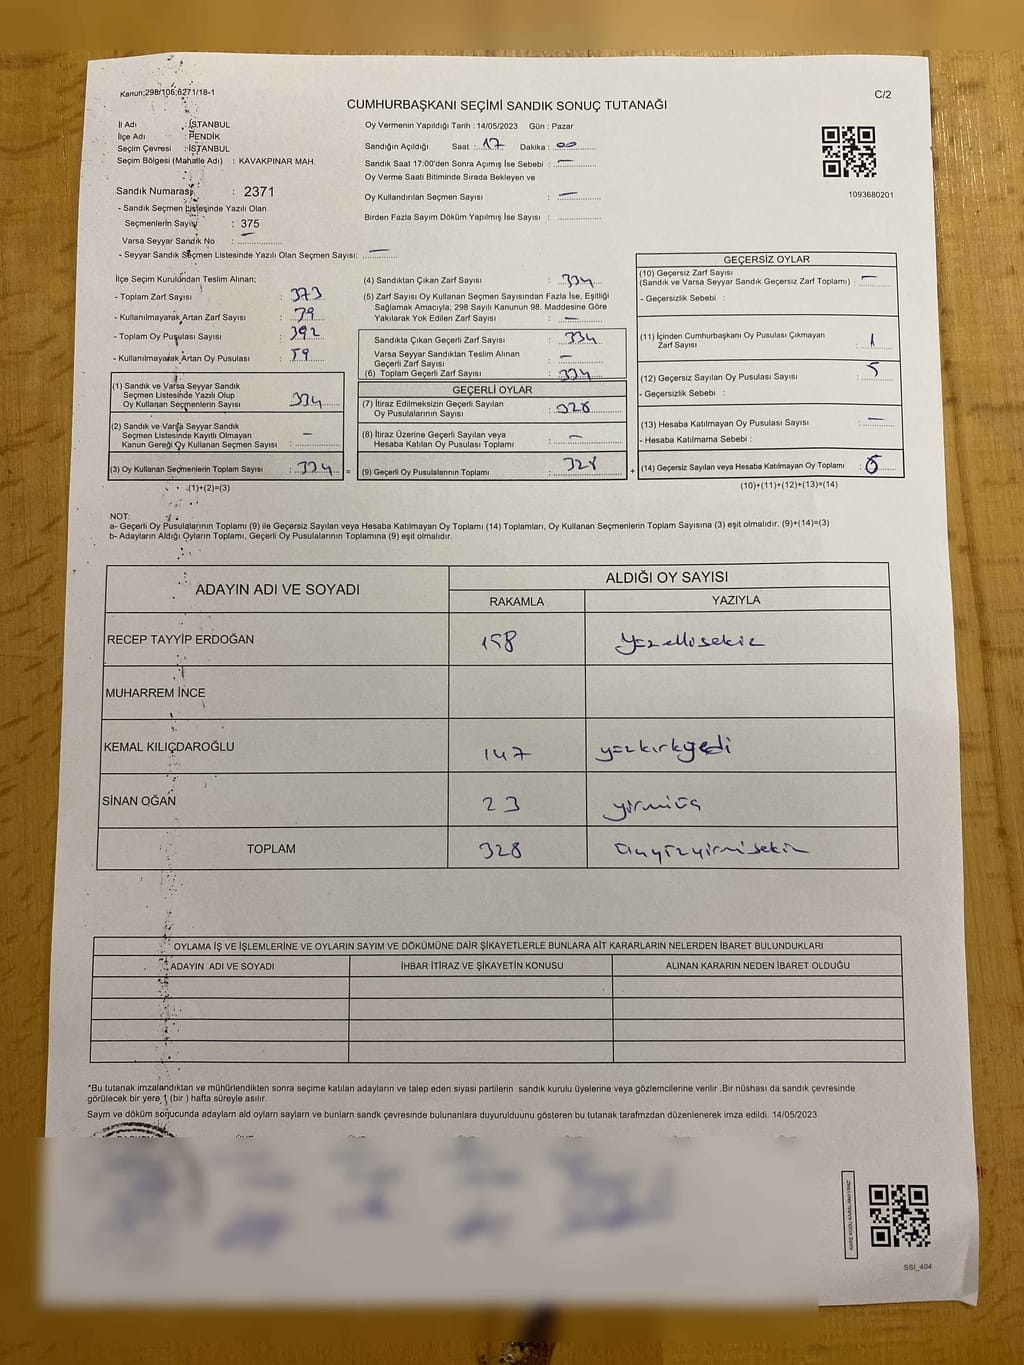 Kanun:298/106;6271/18-1
C/2
CUMHURBAŞKANI SEÇİMİ SANDIK SONUÇ TUTANAĞI
İl Adı : İSTANBUL
İlçe Adı : PENDİK
Seçim Çevresi : İSTANBUL
Seçim Bölgesi (Mahalle Adı) : KAVAKPINAR MAH.
Sandık Numarası : 2371
- Sandık Seçmen Listesinde Yazılı Olan
Seçmenlerin Sayısı : 375
Varsa Seyyar Sandık No : —
- Seyyar Sandık Seçmen Listesinde Yazılı Olan Seçmen Sayısı: —
Oy Vermenin Yapıldığı Tarih : 14/05/2023 Gün : Pazar
Sandığın Açıldığı Saat : 17 Dakika : 00
Sandık Saat 17:00'den Sonra Açımış İse Sebebi : —
Oy Verme Saati Bitiminde Sırada Bekleyen ve
Oy Kullandırılan Seçmen Sayısı : —
Birden Fazla Sayım Döküm Yapılmış İse Sayısı :
1093680201
İlçe Seçim Kurulundan Teslim Alınan;
- Toplam Zarf Sayısı : 373
- Kullanılmayarak Artan Zarf Sayısı : 39
- Toplam Oy Pusulası Sayısı : 392
- Kullanılmayarak Artan Oy Pusulası : 59
(1) Sandık ve Varsa Seyyar Sandık
Seçmen Listesinde Yazılı Olup
Oy Kullanan Seçmenlerin Sayısı : 334
(2) Sandık ve Varsa Seyyar Sandık
Seçmen Listesinde Kayıtlı Olmayan
Kanun Gereği Oy Kullanan Seçmen Sayısı : —
(3) Oy Kullanan Seçmenlerin Toplam Sayısı : 334 =
.(1)+(2)=(3)
(4) Sandıktan Çıkan Zarf Sayısı : 334
(5) Zarf Sayısı Oy Kullanan Seçmen Sayısından Fazla İse, Eşitliği
Sağlamak Amacıyla; 298 Sayılı Kanunun 98. Maddesine Göre
Yakılarak Yok Edilen Zarf Sayısı : —
Sandıkta Çıkan Geçerli Zarf Sayısı : 334
Varsa Seyyar Sandıktan Teslim Alınan
Geçerli Zarf Sayısı : —
(6) Toplam Geçerli Zarf Sayısı : 334
GEÇERLİ OYLAR
(7) İtiraz Edilmeksizin Geçerli Sayılan
Oy Pusulalarının Sayısı : 328
(8) İtiraz Üzerine Geçerli Sayılan veya
Hesaba Katılan Oy Pusulası Toplamı : —
(9) Geçerli Oy Pusulalarının Toplamı : 328 +
GEÇERSİZ OYLAR
(10) Geçersiz Zarf Sayısı
(Sandık ve Varsa Seyyar Sandık Geçersiz Zarf Toplamı) : —
- Geçersizlik Sebebi :
(11) İçinden Cumhurbaşkanı Oy Pusulası Çıkmayan
Zarf Sayısı : 1
(12) Geçersiz Sayılan Oy Pusulası Sayısı : 5
- Geçersizlik Sebebi :
(13) Hesaba Katılmayan Oy Pusulası Sayısı : —
- Hesaba Katılmama Sebebi :
(14) Geçersiz Sayılan veya Hesaba Katılmayan Oy Toplamı :
(10)+(11)+(12)+(13)=(14)
NOT:
a- Geçerli Oy Pusulalarının Toplamı (9) ile Geçersiz Sayılan veya Hesaba Katılmayan Oy Toplamı (14) Toplamları, Oy Kullanan Seçmenlerin Toplam Sayısına (3) eşit olmalıdır. (9)+(14)=(3)
b- Adayların Aldığı Oyların Toplamı, Geçerli Oy Pusulalarının Toplamına (9) eşit olmalıdır.
ADAYIN ADI VE SOYADI ALDIĞI OY SAYISI
RAKAMLA YAZIYLA
RECEP TAYYİP ERDOĞAN 158 Yüzellisekiz
MUHARREM İNCE
KEMAL KILIÇDAROĞLU 147 yüzkırkyedi
SİNAN OĞAN 23 yirmiüç
TOPLAM 328 üçyüzyirmisekiz
OYLAMA İŞ VE İŞLEMLERİNE VE OYLARIN SAYIM VE DÖKÜMÜNE DAİR ŞİKAYETLERLE BUNLARA AİT KARARLARIN NELERDEN İBARET BULUNDUKLARI
ADAYIN ADI VE SOYADI İHBAR İTİRAZ VE ŞİKAYETİN KONUSU ALINAN KARARIN NEDEN İBARET OLDUĞU
*Bu tutanak imzalandıktan ve mühürlendikten sonra seçime katılan adayların ve talep eden siyasi partilerin sandık kurulu üyelerine veya gözlemcilerine verilir .Bir nüshası da sandık çevresinde
görülecek bir yere 1 (bir ) hafta süreyle asılır.
Sayım ve döküm sonucunda adayların ald oyların sayların ve bunların sandk çevresinde bulunanlara duyurulduunu gösteren bu tutanak tarafmzdan düzenlenerek imza edildi. 14/05/2023
KARE KODU KARALAMAYINIZ!
SSI_404